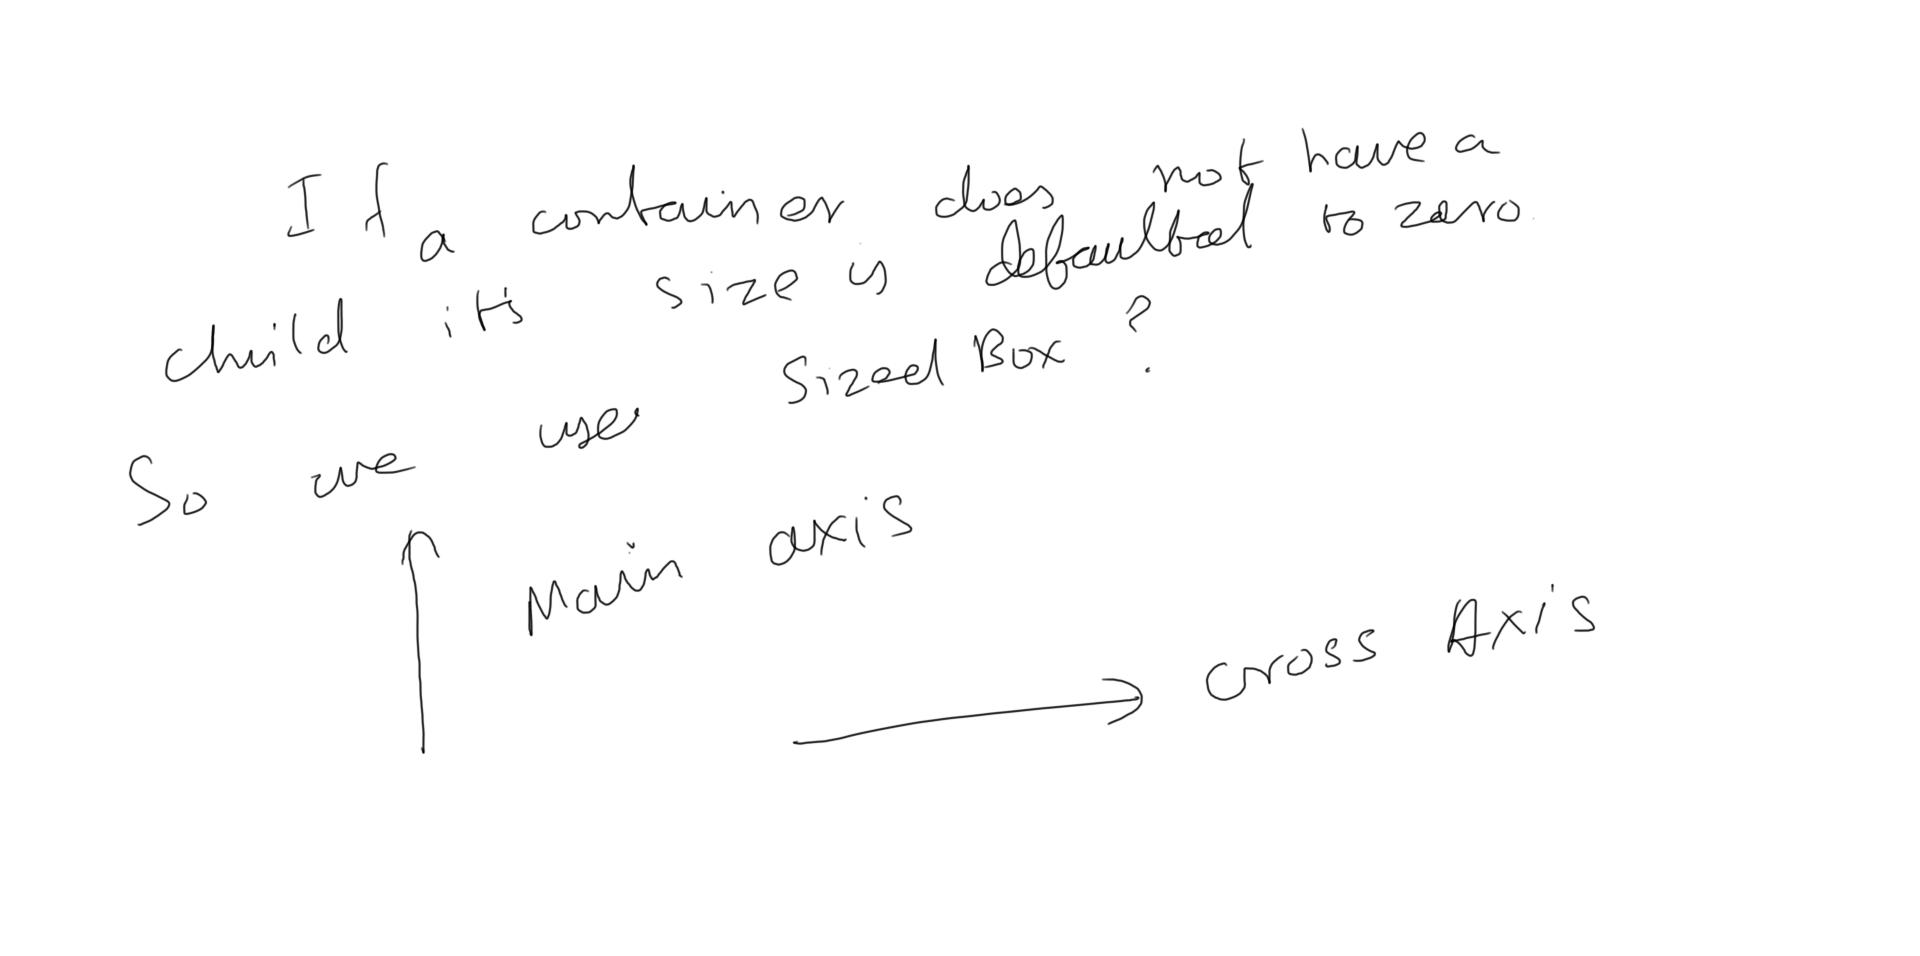 If a container does not have a
child it's size is defaulted to zero.
So we use Sized Box ?
Main axis
cross Axis